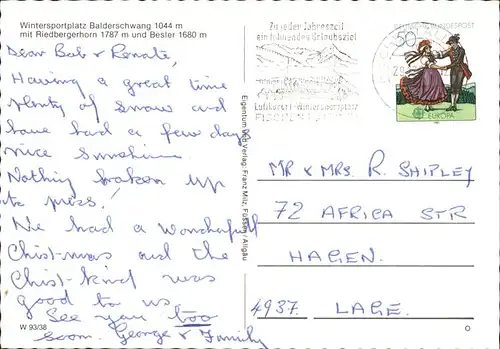 Wintersportplatz Balderschwang 1044 m
mit Riedbergerhorn 1787 m und Besler 1680 m
Dear Bob & Renate,
Having a great time
plenty of snow and
have had a few days
nice sunshine.
Nothing broken up
to press!
We had a wonderfull
Christ-mas and the
Christ-kind was
good to us
See you too
soon. George & Family
W 93/38
Eigentum und Verlag: Franz Milz, Füssen / Allgäu
Zu jeder Jahreszeit
ein führendes Urlaubsziel
Luftkurort - Wintersportplatz
DEUTSCHE BUNDESPOST
50
EUROPA
MR & MRS. R. SHIPLEY
72 AFRICA STR
HAGEN.
4937. LAGE.